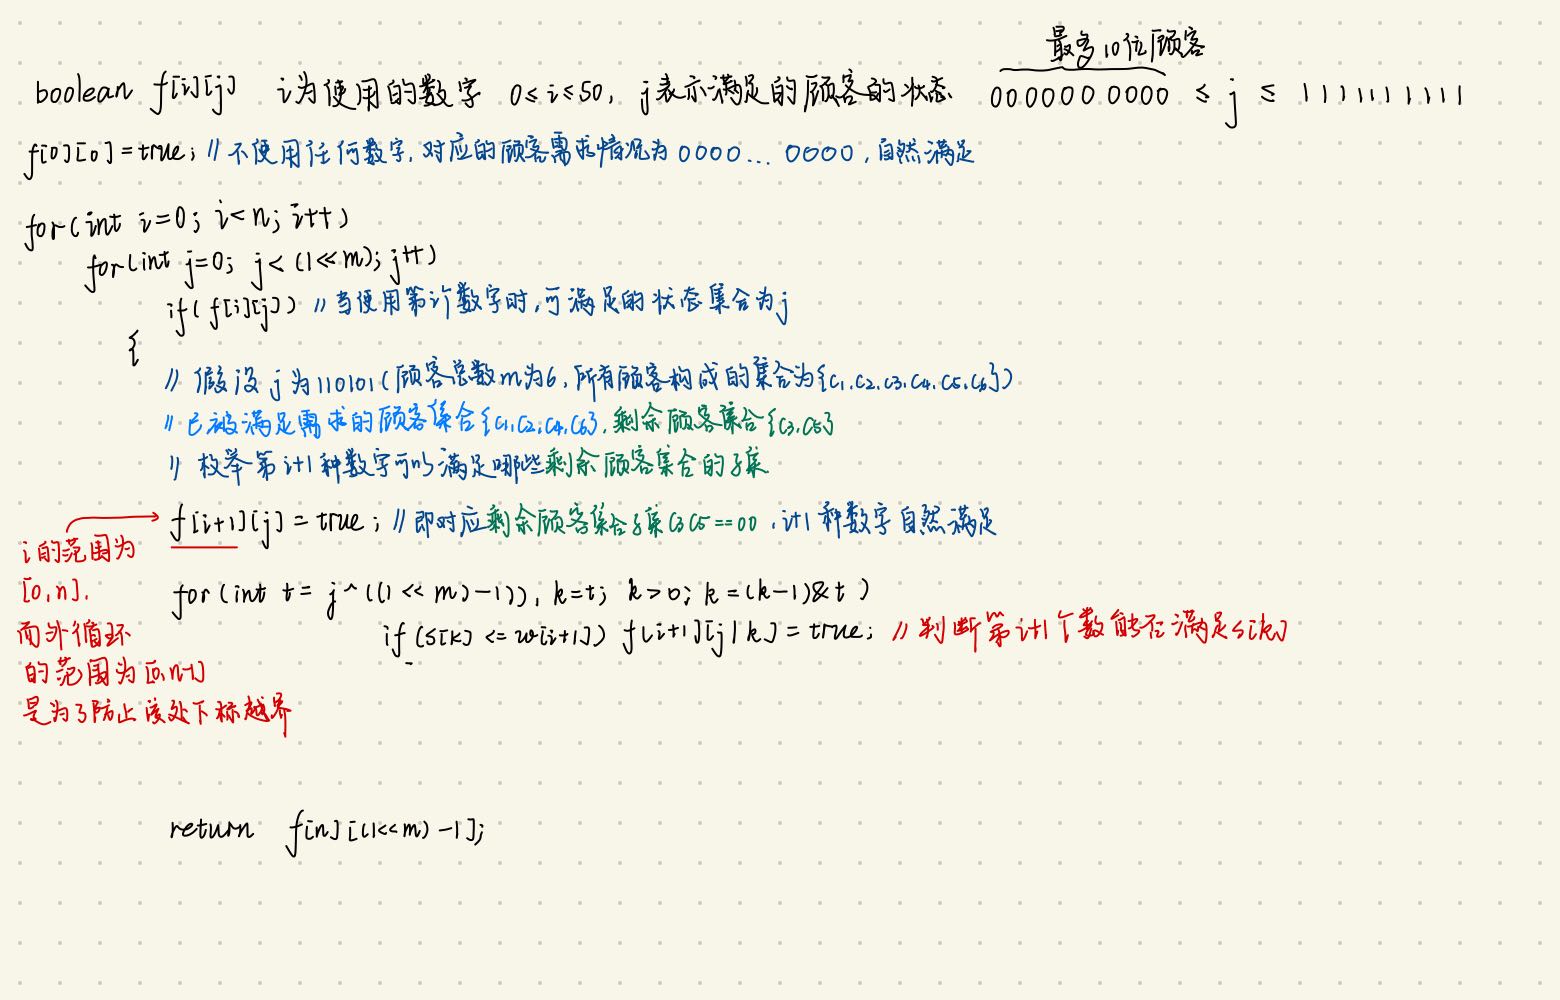 最多10位顾客
boolean f[i][j] i为使用的数字 0≤i≤50, j表示满足的顾客的状态 000000 0000 ≤ j ≤ 1111111111
f[0][0]=true; // 不使用任何数字, 对应的顾客需求情况为0000...0000, 自然满足
for(int i=0; i<n; i++)
for(int j=0; j<(1<<m); j++)
if(f[i][j]) // 当使用第i个数字时, 可满足的状态集合为j
{
// 假设j为110101(顾客总数m为6, 所有顾客构成的集合为{c1,c2,c3,c4,c5,c6})
// 已被满足需求的顾客集合{c1,c2,c4,c6}, 剩余顾客集合{c3,c5}
// 枚举第i+1种数字可以满足哪些剩余顾客集合的子集
f[i+1][j]=true; // 即对应剩余顾客集合子集c3c5==00, i+1种数字自然满足
i的范围为
[0,n],
而外循环
的范围为[0,n-1]
是为了防止该处下标越界
for(int t= j^((1<<m)-1)), k=t; k>0; k=(k-1)&t)
if(s[k]<=w[i+1]) f[i+1][j|k]=true; // 判断第i+1个数能否满足s[k]
return f[n][(1<<m)-1];